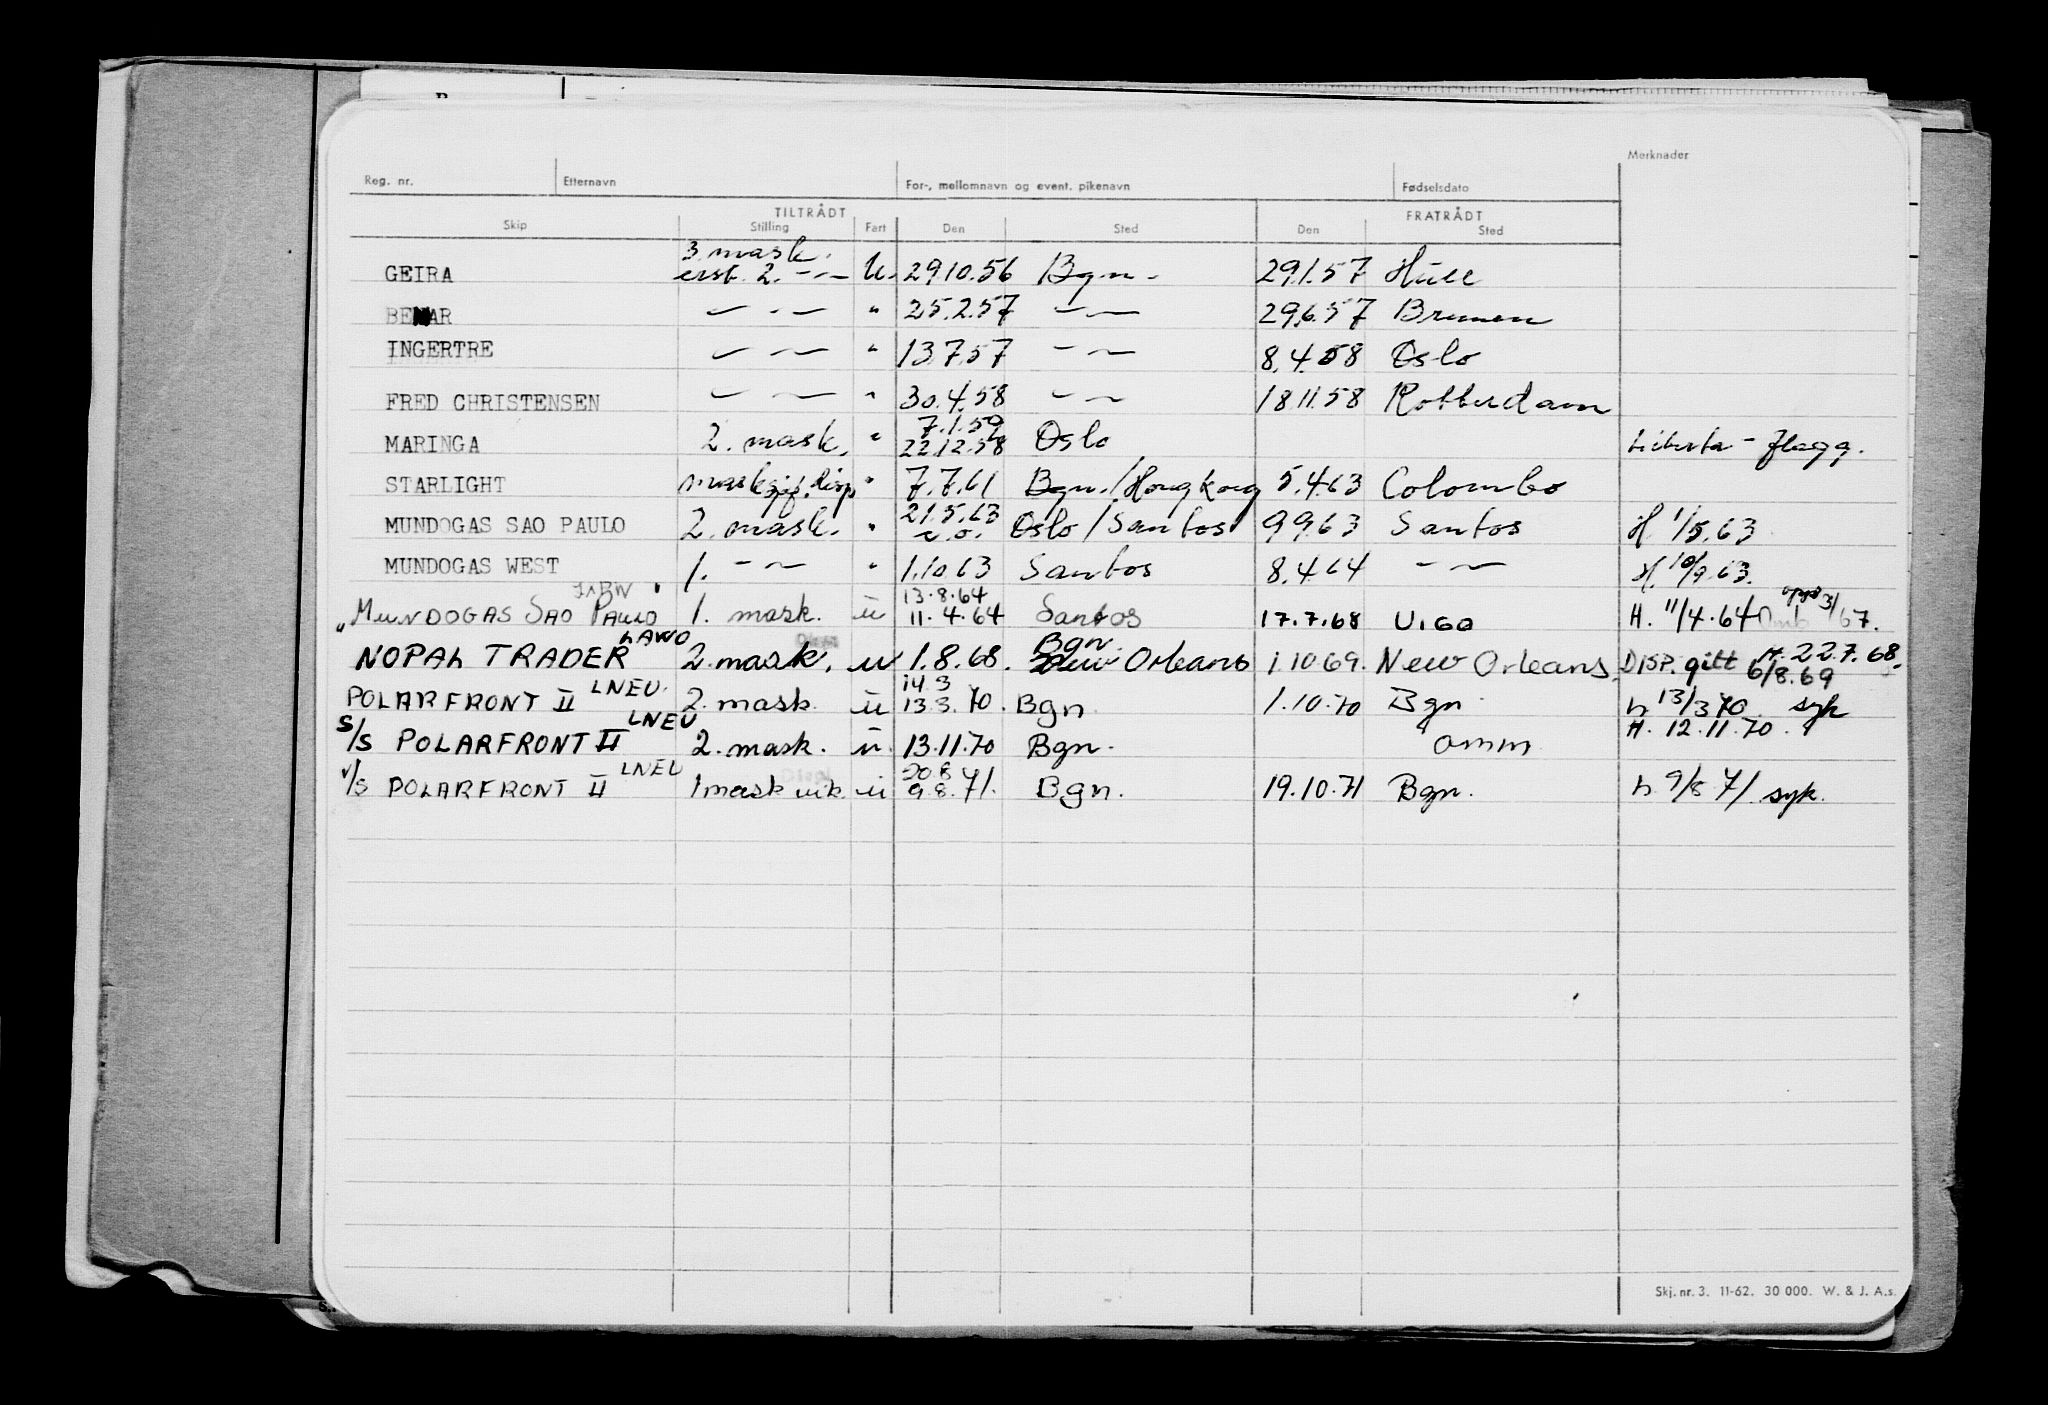 Merknader
Reg. nr. Etternavn For-, mellomnavn og event. pikenavn Fødselsdato
TILTRÅDT FRATRÅDT
Skip Stilling Fart Den Sted Den Sted
3. mask.
GEIRA erst. 2. -"- U. 29.10.56 Bgn. 29.1.57 Hull
BENAR -"- " 25.2.57 -"- 29.6.57 Bremen
INGERTRE -"- " 13.7.57 -"- 8.4.58 Oslo
FRED CHRISTENSEN -"- " 30.4.58 -"- 18.11.58 Rotterdam
7.1.59
MARINGA 2. mask. " 22.12.58 Oslo Liberia-flagg.
STARLIGHT maskoff. disp " 7.7.61 Bgn./Hong Kong 5.4.63 Colombo
21.5.63
MUNDOGAS SAO PAULO 2. mask. " Oslo/Santos 9.9.63 Santos H 1/5.63
MUNDOGAS WEST 1. -"- " 1.10.63 Santos 8.4.64 -"- H. 10/9.63.
13.8.64
"MUNDOGAS SAO PAULO 1. mask. u 11.4.64 Santos 17.7.68 VIGO H. 11/4.64 3/67.
LAWO Bgn.
NOPAL TRADER 2. mask. u 1.8.68. New Orleans 1.10.69. New Orleans. DISP. gitt 6/8.69 H. 22.7.68.
LNEU. 14.3
POLARFRONT II 2. mask. u 13.3.70. Bgn. 1.10.70 Bgn h 13/3 70 syk
LNEU
S/S POLARFRONT II 2. mask. u. 13.11.70 Bgn. omm H. 12.11.70.
LNEU 20.8
V/S POLARFRONT II 1 mask vik. u 9.8.71. Bgn. 19.10.71 Bgn. h 9/8 71 syk.
Skj. nr. 3. 11-62. 30 000. W. & J. A.s.